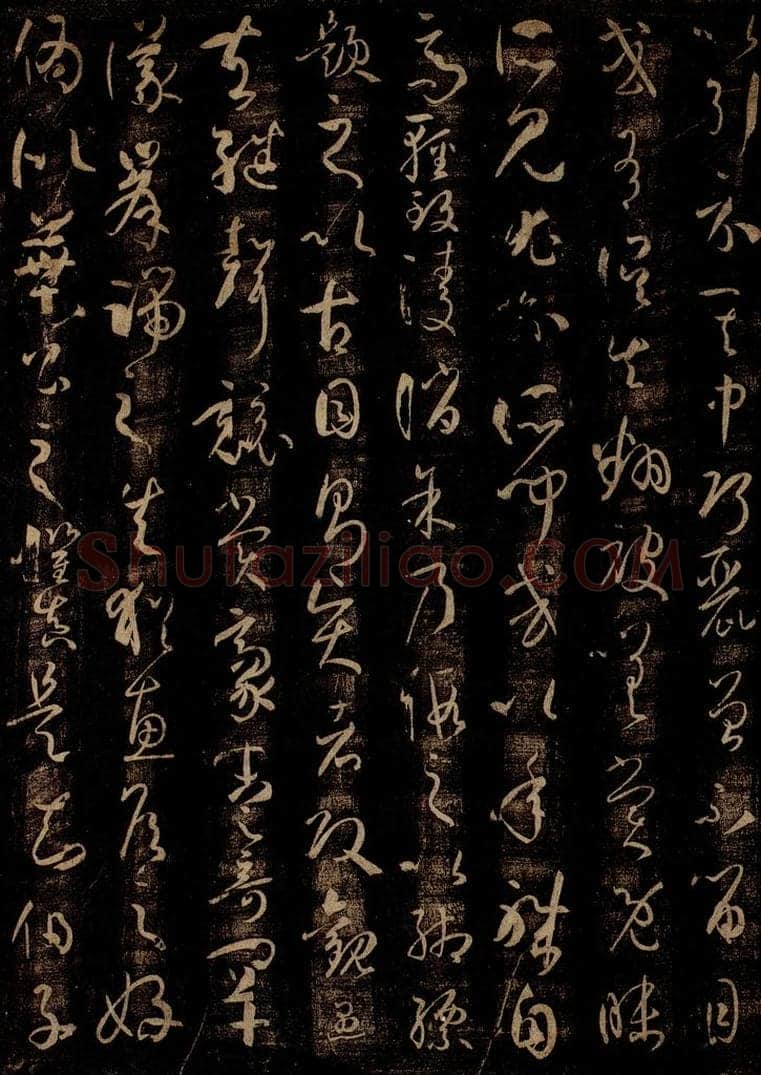 以引示其中巧麗曾不留目
或有誤失翻被嗟賞既昧
所見尤喻所聞或以年職自
高輕致陵誚余乃假之以緗縹
題之以古目則賢者改觀愚
夫繼聲競賞豪末之奇罕
議峯端之失猶惠侯之好
偽似葉公之懼真是知伯子
Shufaziliao.COM